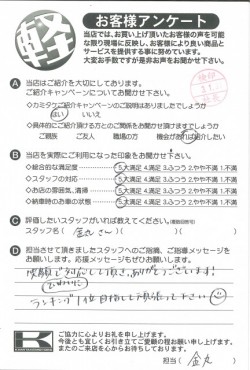 軽
お客様アンケート
当店では、お買い上げ頂いたお客様の声を可能な限り現場に反映し、お客様により良い商品とサービスを提供する事に努めています。
大変お手数ですが是非お声をお聞かせ下さい。
A 当店はご紹介を大切にしております。
ご紹介キャンペーンについてお聞かせ下さい
・カミタケご紹介キャンペーンのご説明はありましたでしょうか
はい いいえ
・具体的にご紹介頂ける方とのご関係をお聞かせ頂けますでしょうか
ご親戚 ご友人 職場の方 機会があれば紹介したい
B 当店を実際にご利用になった印象をお聞かせ下さい。
・総合的な満足度 5.大満足 4.満足 3.ふつう 2.やや不満 1.不満
・スタッフの対応 5.大満足 4.満足 3.ふつう 2.やや不満 1.不満
・お店の雰囲気、清掃 5.大満足 4.満足 3.ふつう 2.やや不満 1.不満
・納車時のお車の状態 5.大満足 4.満足 3.ふつう 2.やや不満 1.不満
C 評価したいスタッフがいれば教えてください。
スタッフ名( さん )
D 担当させて頂きましたスタッフへのご指摘、ご指導メッセージをお願いします。応援メッセージもぜひお願いします。
笑顔で対応して頂き、ありがとうございます!
ランキング1位目指して頑張って下さい
K
ご協力に心よりお礼を申し上げます。
今後とも宜しくお引き立てご愛顧の程お願い申し上げます。
またのご来店を心からお待ちしております。
担当( )